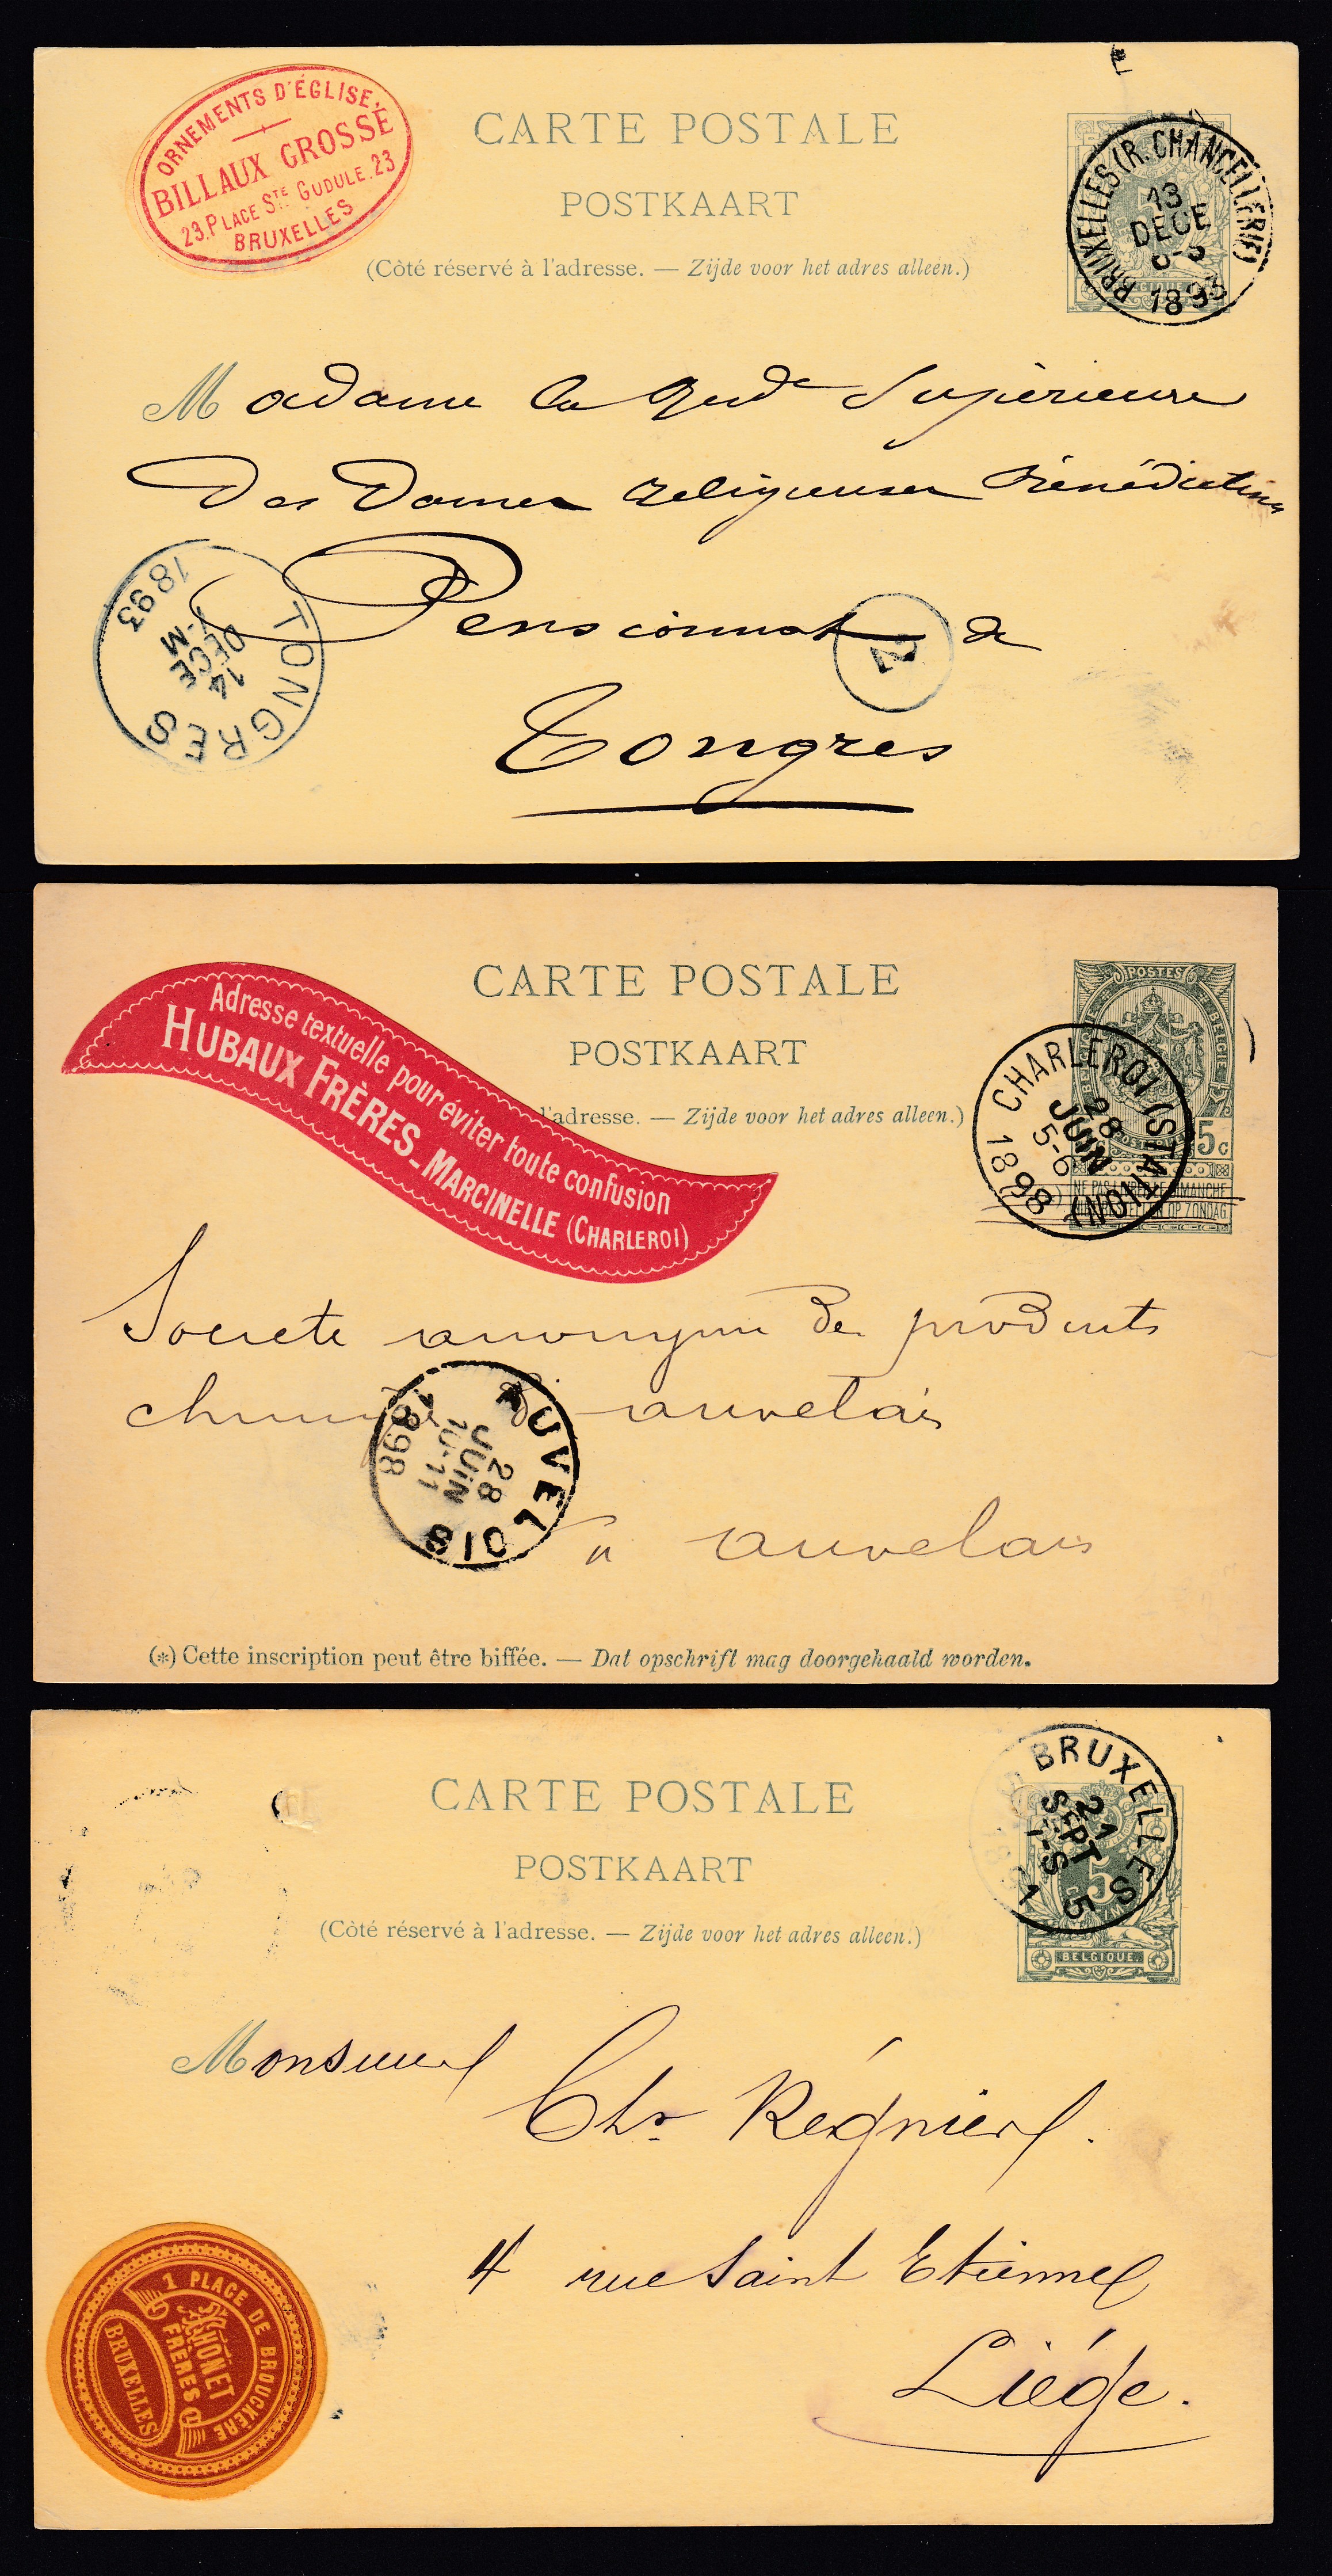 ORNEMENTS D'ÉGLISE.
BILLAUX GROSSÉ
23. PLACE STE GUDULE. 23
BRUXELLES
CARTE POSTALE
POSTKAART
(Côté réservé à l'adresse. — Zijde voor het adres alleen.)
BRUXELLES (R. CHANCELLERIE)
13
DECE
1893
Madame la Rvde Supérieure
des Dames religieuses Bénédictines
Pensionnat de
Tongres
TONGRES
14
DECE
7-M
1893
Adresse textuelle pour éviter toute confusion
HUBAUX FRÈRES_MARCINELLE (CHARLEROI)
CARTE POSTALE
POSTKAART
l'adresse. — Zijde voor het adres alleen.)
POSTES
BELGIQUE BELGIË
5c
NE PAS LIVRER LE DIMANCHE
OP ZONDAG
CHARLEROI (STATION)
28
JUIN
5-6
1898
Societe anonyme des produits
chimiques d'auvelais
AUVELOIS
28
JUIN
10-11
1898
a auvelais
(*) Cette inscription peut être biffée. — Dat opschrift mag doorgehaald worden.
CARTE POSTALE
POSTKAART
(Côté réservé à l'adresse. — Zijde voor het adres alleen.)
BRUXELLES 5 1
21
SEPT
7-S
5
BELGIQUE
Monsieur
Chs Régnier.
4 rue Saint Etienne
Liége.
1 PLACE DE BROUCKÈRE
THONET
FRÈRES
BRUXELLES